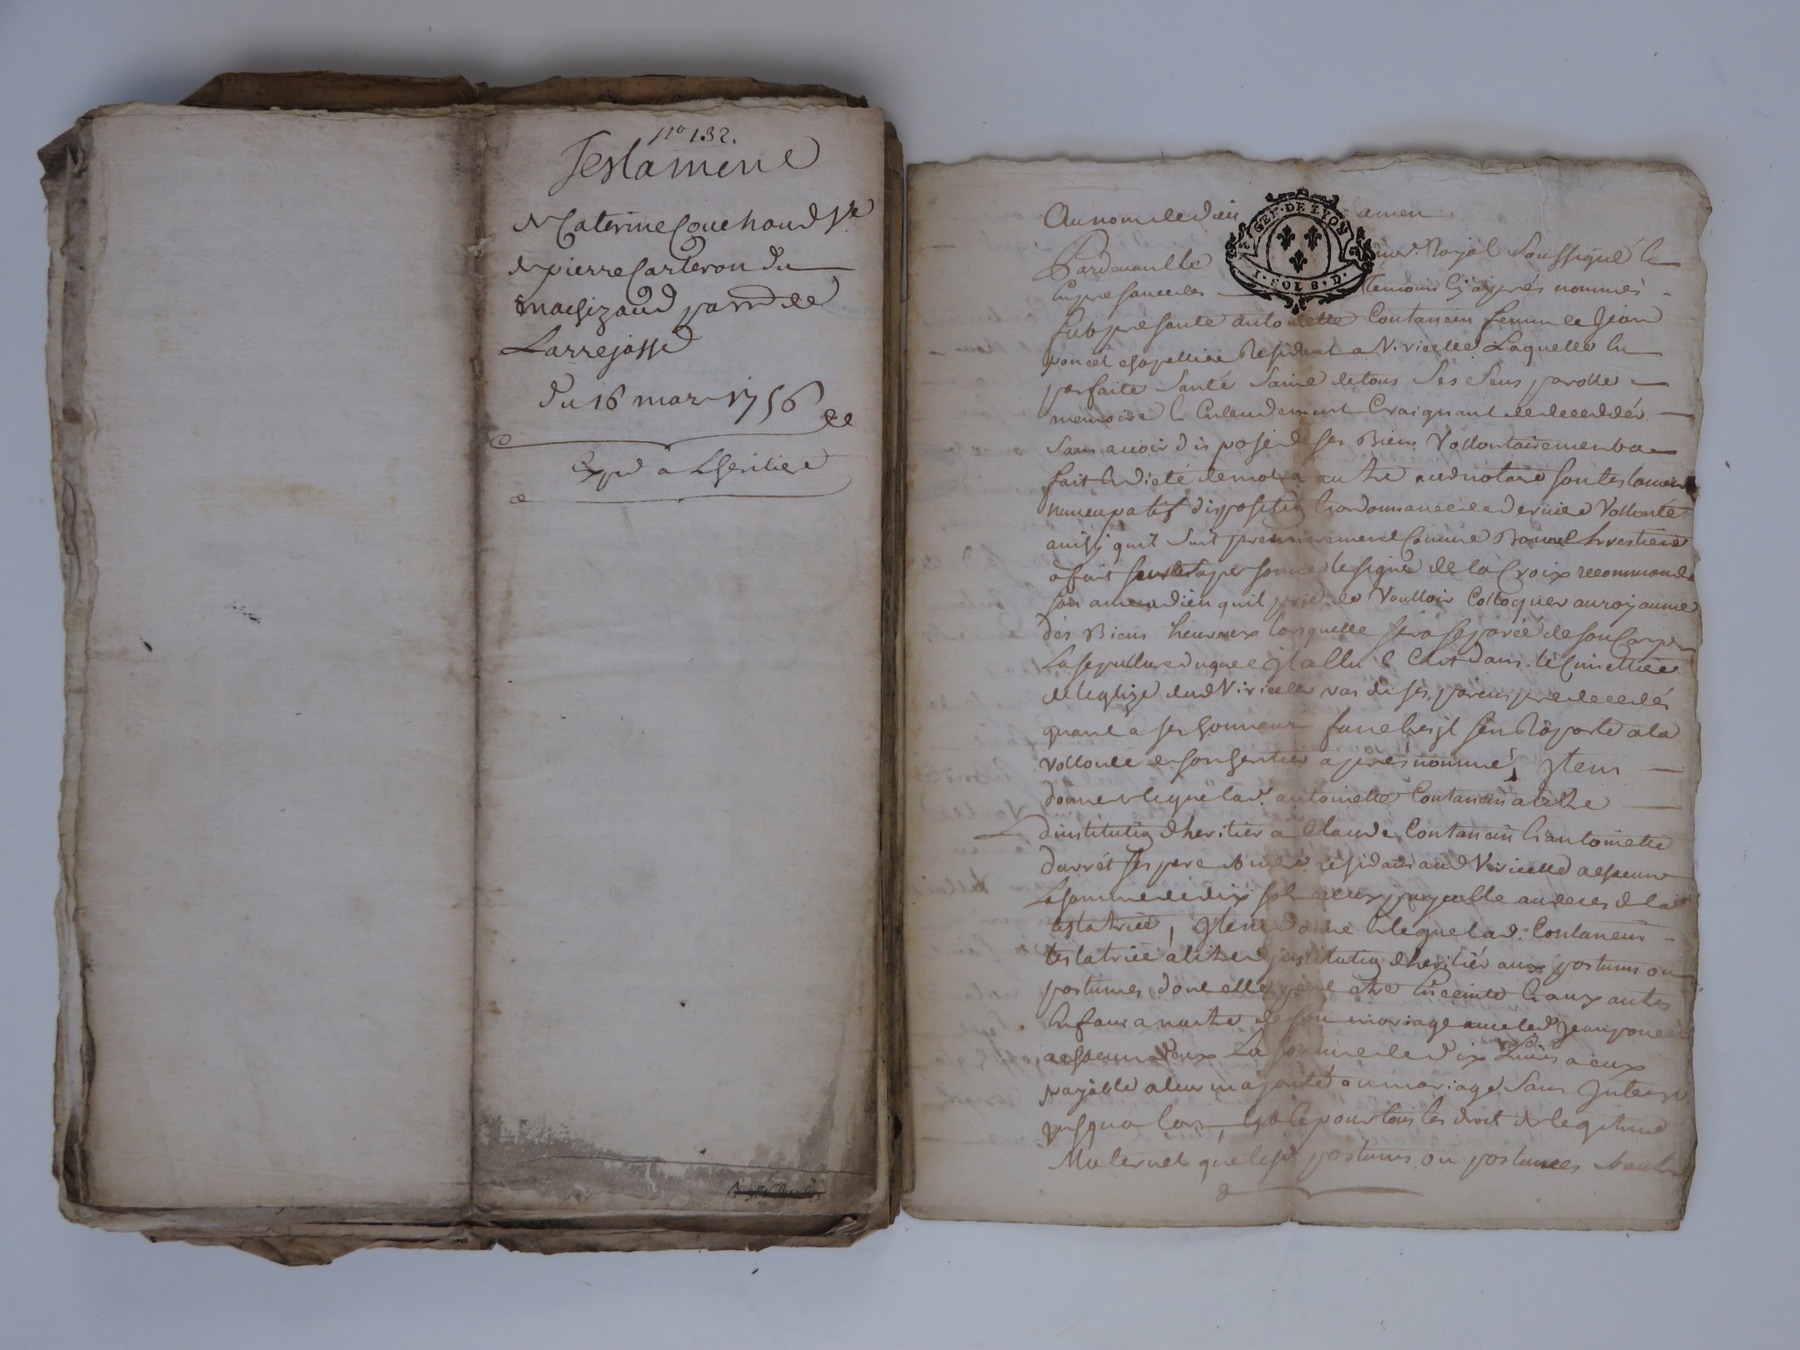 no 132.
Testament
de Caterine Couchoud Ve
de pierre Carteron du
mathizaud parr de
Larrejasse
du 16 mars 1756
Expd a Lheritiere
Au nom de dieu amen
GEN. DE LYON
1. SOL 8. D.
Pardevant le Royal Soussigné &
En presance des temoins Cy apres nommés
fut presante antoinette Contancin femme de Jean
poncet residant a Viricelle Laquelle En
parfaite Santé Saine de tous Ses Sens parolle
memoire & Entendement Craignant de deceddér
Sans avoir disposé de ses Biens Vollontairement a
fait & dicté de mot a autre aud notaire son testament
nuncupatif disposition & ordonnance de derniere Vollonté
ainsy quil Suit premierement Comme Bonne Chrestienne
a fait sur sa personne le signe de la Croix recommandé
son ame a dieu quil prie de Voulloir Colloquer au royaume
dés Biens heureux lorsquelle sera separée de son Corps
La sepulture duquel Elit dans le Cimettiere
de leglize dud Viricelle vas de ses parens predecedés
quant a ses honneurs funebres sen raporte a la
vollonté de son heritier aprés nommé, Item
donne & legue lad. antoinette Contancin a titre
dinstitution dheritier a Claude Contancin & antoinette
ses pere & mere residans aud Viricelle a chacun
La somme de dix sols a eux payable au deces de la
testatrice, Item donne & legue lad. Contancin
testatrice a titre dinstitution dheritier aux postumes ou
postumes dont elle peut etre Enceinte & aux autres
Enfans a naitre de son mariage avec led Jean poncet
a chacun deux La somme de dix Livres a eux
payable a leur majorité ou mariage Sans Interest
jusqua lors, & ce pour tous les droit de legitime
Maternel que lesd postumes ou postumes